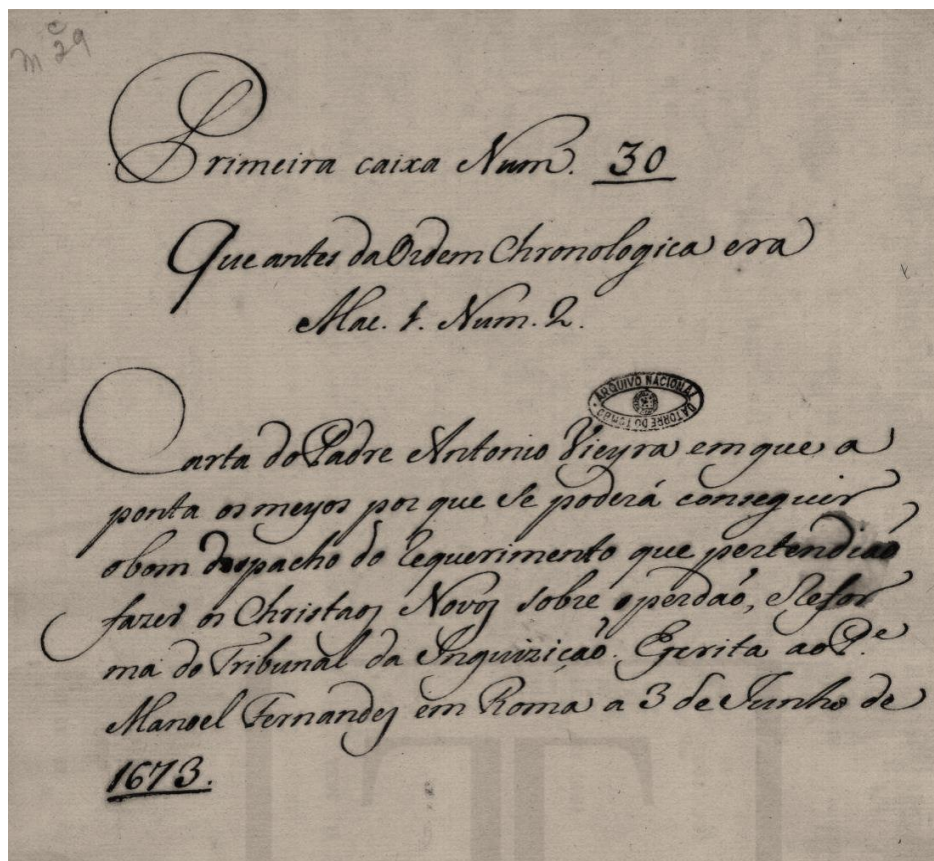 M^c 29
Primeira caixa Num. 30
Que antes da Ordem Chronologica era
Mac. 1. Num. 2.
ARQUIVO NACIONAL DA TORRE DO TOMBO
Carta do Padre Antonio Vieyra em que a
ponta os meyos por que se poderá conseguir
o bom despacho do Requerimento que pertendião
fazer os Christaos Novos sobre o perdaõ, e Refor
ma do Tribunal da Inquizição. Escrita ao P.^e
Manoel Fernandes em Roma a 3 de Junho de
1673.